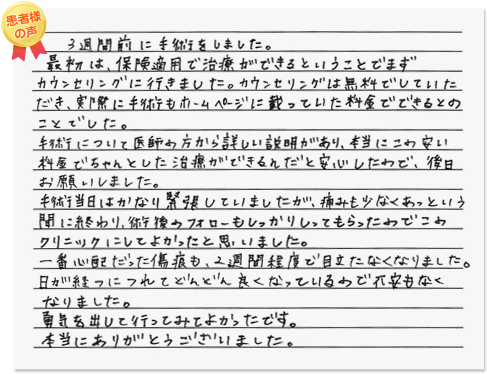 患者様
の声
3週間前に手術をしました。
最初は、保険適用で治療ができるということでまず
カウンセリングに行きました。カウンセリングは無料でしていた
だき、実際に手術もホームページに載っていた料金でできるとの
ことでした。
手術について医師の方から詳しい説明があり、本当にこの安い
料金でちゃんとした治療ができるんだと安心したので、後日
お願いしました。
手術当日はかなり緊張していましたが、痛みも少なくあっという
間に終わり、術後のフォローもしっかりしてもらったのでこの
クリニックにしてよかったと思いました。
一番心配だった傷痕も、2週間程度で目立たなくなりました。
日が経つにつれてどんどん良くなっているので不安もなく
なりました。
勇気を出して行ってみてよかったです。
本当にありがとうございました。